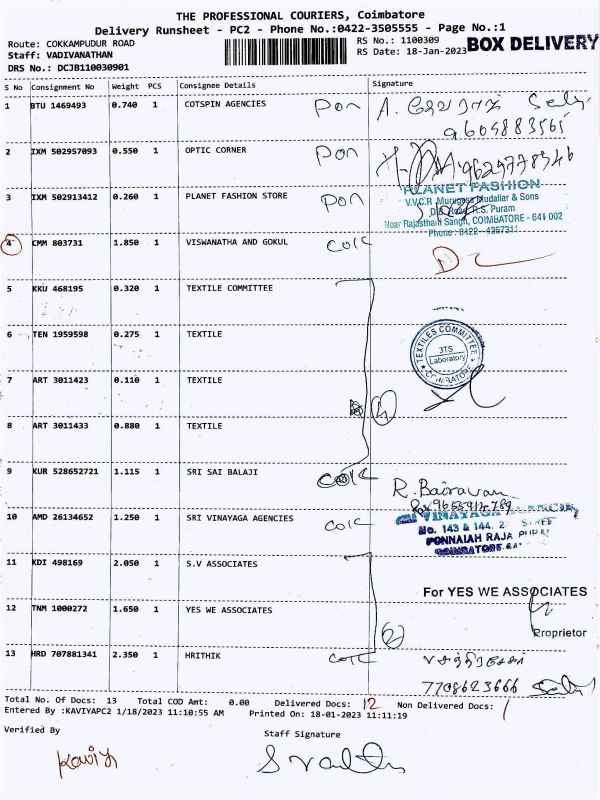 THE PROFESSIONAL COURIERS, Coimbatore
Delivery Runsheet - PC2 - Phone No.:0422-3505555 - Page No.:1
Route: COKKAMPUDUR ROAD
Staff: VADIVANATHAN
DRS No.: DCJB110030901
RS No.: 1100309
RS Date: 18-Jan-2023
BOX DELIVERY
S No Consignment No Weight PCS Consignee Details Signature
1 BTU 1469493 0.740 1 COTSPIN AGENCIES
9605883565
2 IXM 502957093 0.550 1 OPTIC CORNER
3 IXM 502913412 0.260 1 PLANET FASHION STORE
PLANET FASHION
V.V.C.R. Murugesa Mudaliar & Sons
R.S. Puram
Near Rajasthani Sangh, COIMBATORE - 641 002
4 CMM 803731 1.850 1 VISWANATHA AND GOKUL
5 KKU 468195 0.320 1 TEXTILE COMMITTEE
6 TEN 1959598 0.275 1 TEXTILE
TEXTILES COMMITTEE
3TS
Laboratory
COIMBATORE
7 ART 3011423 0.110 1 TEXTILE
4
8 ART 3011433 0.880 1 TEXTILE
9 KUR 528652721 1.115 1 SRI SAI BALAJI
R. Bairavan
10 AMD 26134652 1.250 1 SRI VINAYAGA AGENCIES
VINAYAGA
No. 143 & 144,
PONNAIAH RAJA
11 KDI 498169 2.050 1 S.V ASSOCIATES
For YES WE ASSOCIATES
12 TNM 1000272 1.650 1 YES WE ASSOCIATES
2
Proprietor
13 HRD 707881341 2.350 1 HRITHIK
7708623666
Total No. Of Docs: 13 Total COD Amt: 0.00 Delivered Docs: 12 Non Delivered Docs: 1
Entered By :KAVIYAPC2 1/18/2023 11:10:55 AM Printed On: 18-01-2023 11:11:19
Verified By
Staff Signature